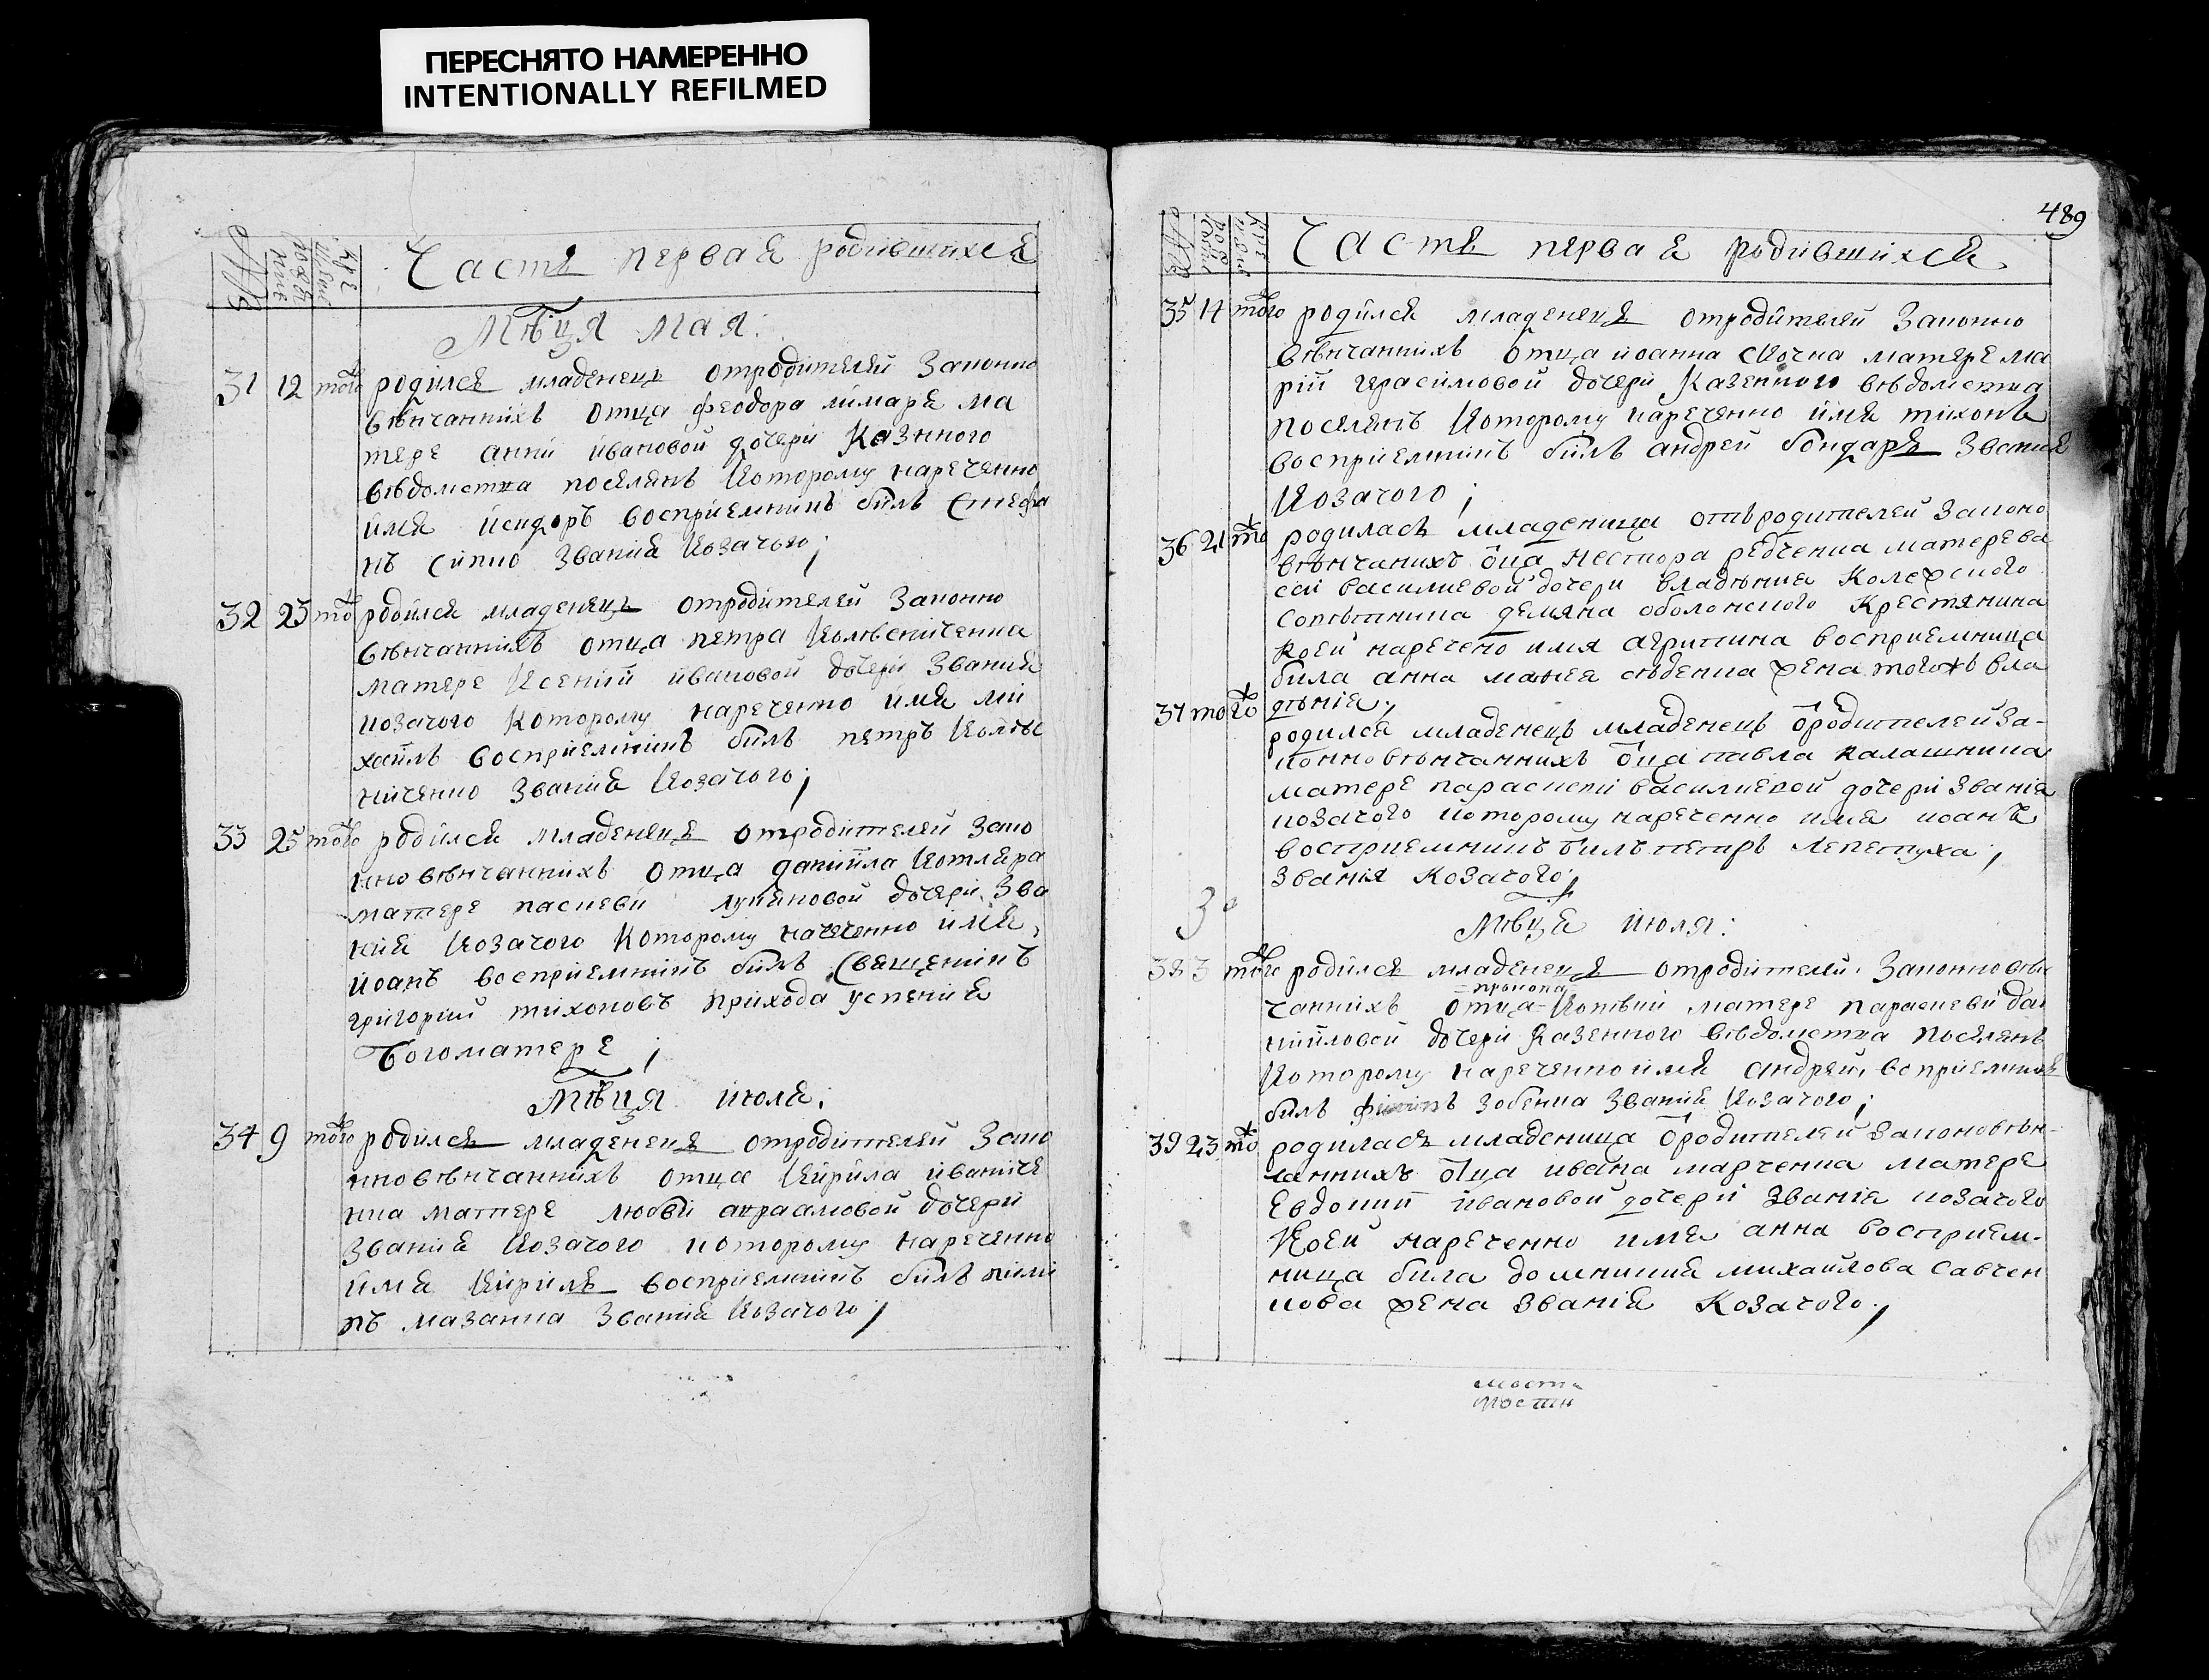 ПЕРЕСНЯТО НАМЕРЕННО
INTENTIONALLY REFILMED
Часть первая родившихся
Мѣця мая:
31 12 того родился младенецъ отродителей Законно
вѣнчаннихъ отца феодора лимаря ма
тере анни ивановой дочери Казнного
вѣдомства поселянъ Которому нареченно
имя исидоръ восприемникъ билъ Стефа
нъ Сипко звания козачого;
32 23 того родился младенецъ отродителей Законно
вѣнчаннихъ отца петра
матере Ксении ивановой дочери звания
козачого Которому нареченно имя ми
хаилъ восприемникъ билъ петръ
звания Козачого;
33 25 того родился младенецъ отродителей Зако
нновѣнчаннихъ отца даниила Котляра
матере пасиеви лукяновой дочери зва
ния Козачого Которому наченно имя
иоанъ восприемникъ билъ Священикъ
григорий тихоновъ прихода успения
Богоматере;
Мѣця июля:
34 9 того родился младенецъ отродителей Зако
нновѣнчаннихъ отца Кирила иваниче
нка матере любви авраамовой дочери
звания Козачого которому нареченно
имя Кирилъ восприемникъ билъ пили
пъ мазанка Звания Козачого;
489
Часть первая родившихся
35 14 того родился младенецъ отродителей Законно
вѣнчаннихъ отца иоанна матере ма
рии герасимовой дочери Казенного вѣдомства
поселянъ Которому нареченно имя тихонъ
восприемникъ билъ андрей бондаръ Звания
Козачого;
36 21 то родилась младеница отъродителей законо
вѣнчанихъ оца нестора редченка матере ва
сси василиевой дочери владѣния
Сотѣтника демяна оболонского Крестянина
коей наречено имя агрипина восприемница
била анна жена тогожъ вла
дѣнія;
37 того родился младенецъ младенецъ ородителей за-
конновѣнчаннихъ оца павла калашника
матере параскеви василиевой дочери званія
козачого которому нареченно имя иоанъ
восприемникъ билъ петръ Лепетуха;
званія Козачого;
Мѣця июля:
38 3 того родился младенецъ отродителей Законновѣн
прокопа
чаннихъ отца матере параскеви да
нииловой дочери Казенного вѣдомства поселянъ
Которому нареченно имя андрей воприемникъ
билъ зобенка Звания Козачого;
39 23 то родилась младеница ородителей законовѣн-
чаннихъ оца ивана марченка матере
Евдокии ивановой дочери званія козачого
Коей нареченно имя анна восприем-
ница била домникия михаилова савчен
кова жена званія Козачого;